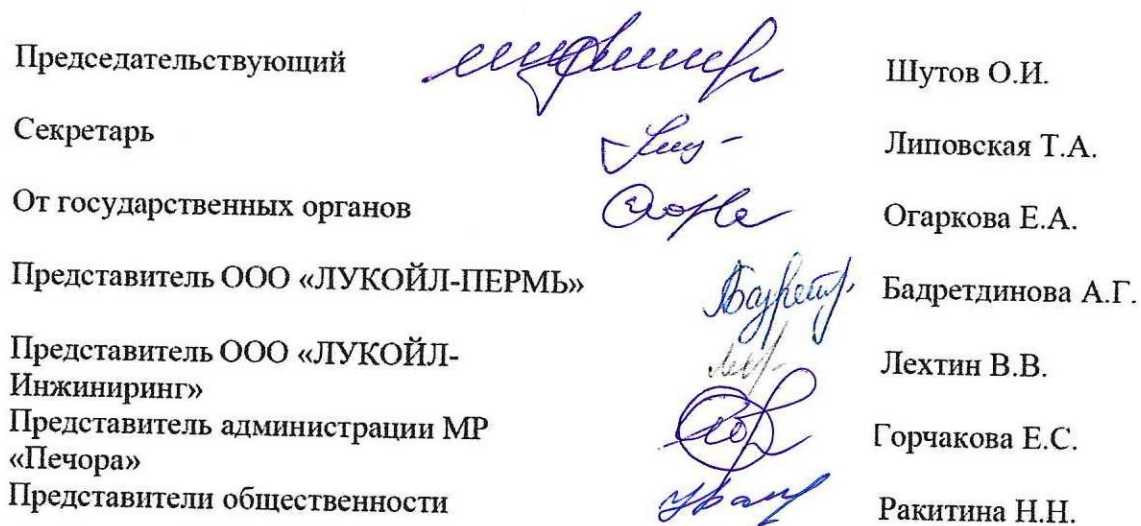 Председательствующий Шутов О.И.
Секретарь Липовская Т.А.
От государственных органов Огаркова Е.А.
Представитель ООО «ЛУКОЙЛ-ПЕРМЬ» Бадретдинова А.Г.
Представитель ООО «ЛУКОЙЛ-
Инжиниринг» Лехтин В.В.
Представитель администрации МР
«Печора» Горчакова Е.С.
Представители общественности Ракитина Н.Н.